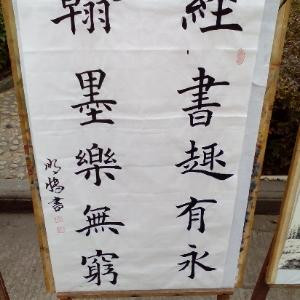 經書趣有永
翰墨樂無窮